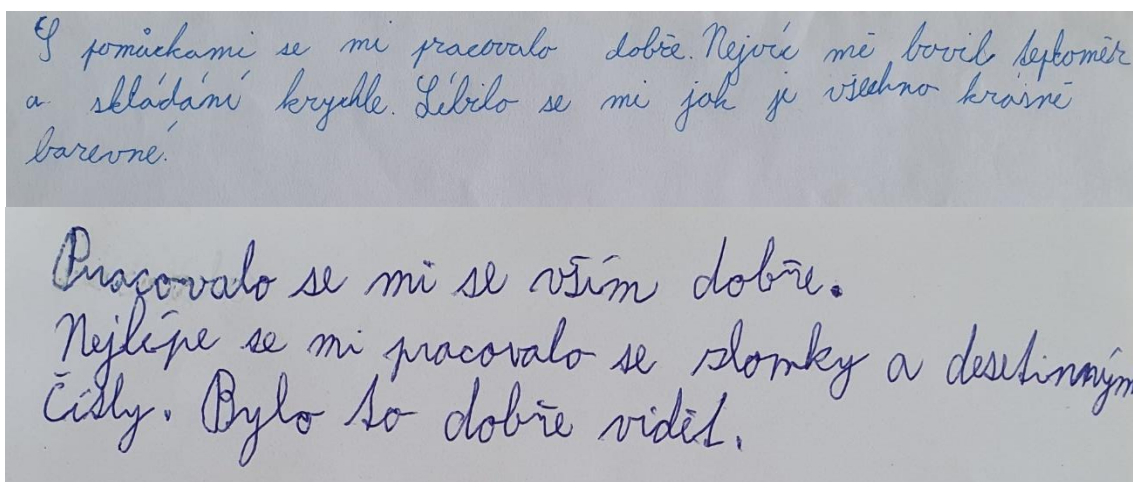 S pomůckami se mi pracovalo dobře. Nejvíc mě bavil teploměr
a skládání krychle. Líbilo se mi jak je všechno krásně
barevné.
Pracovalo se mi se vším dobře.
Nejlépe se mi pracovalo se slomky a desetinným
Čísly. Bylo to dobře vidět.